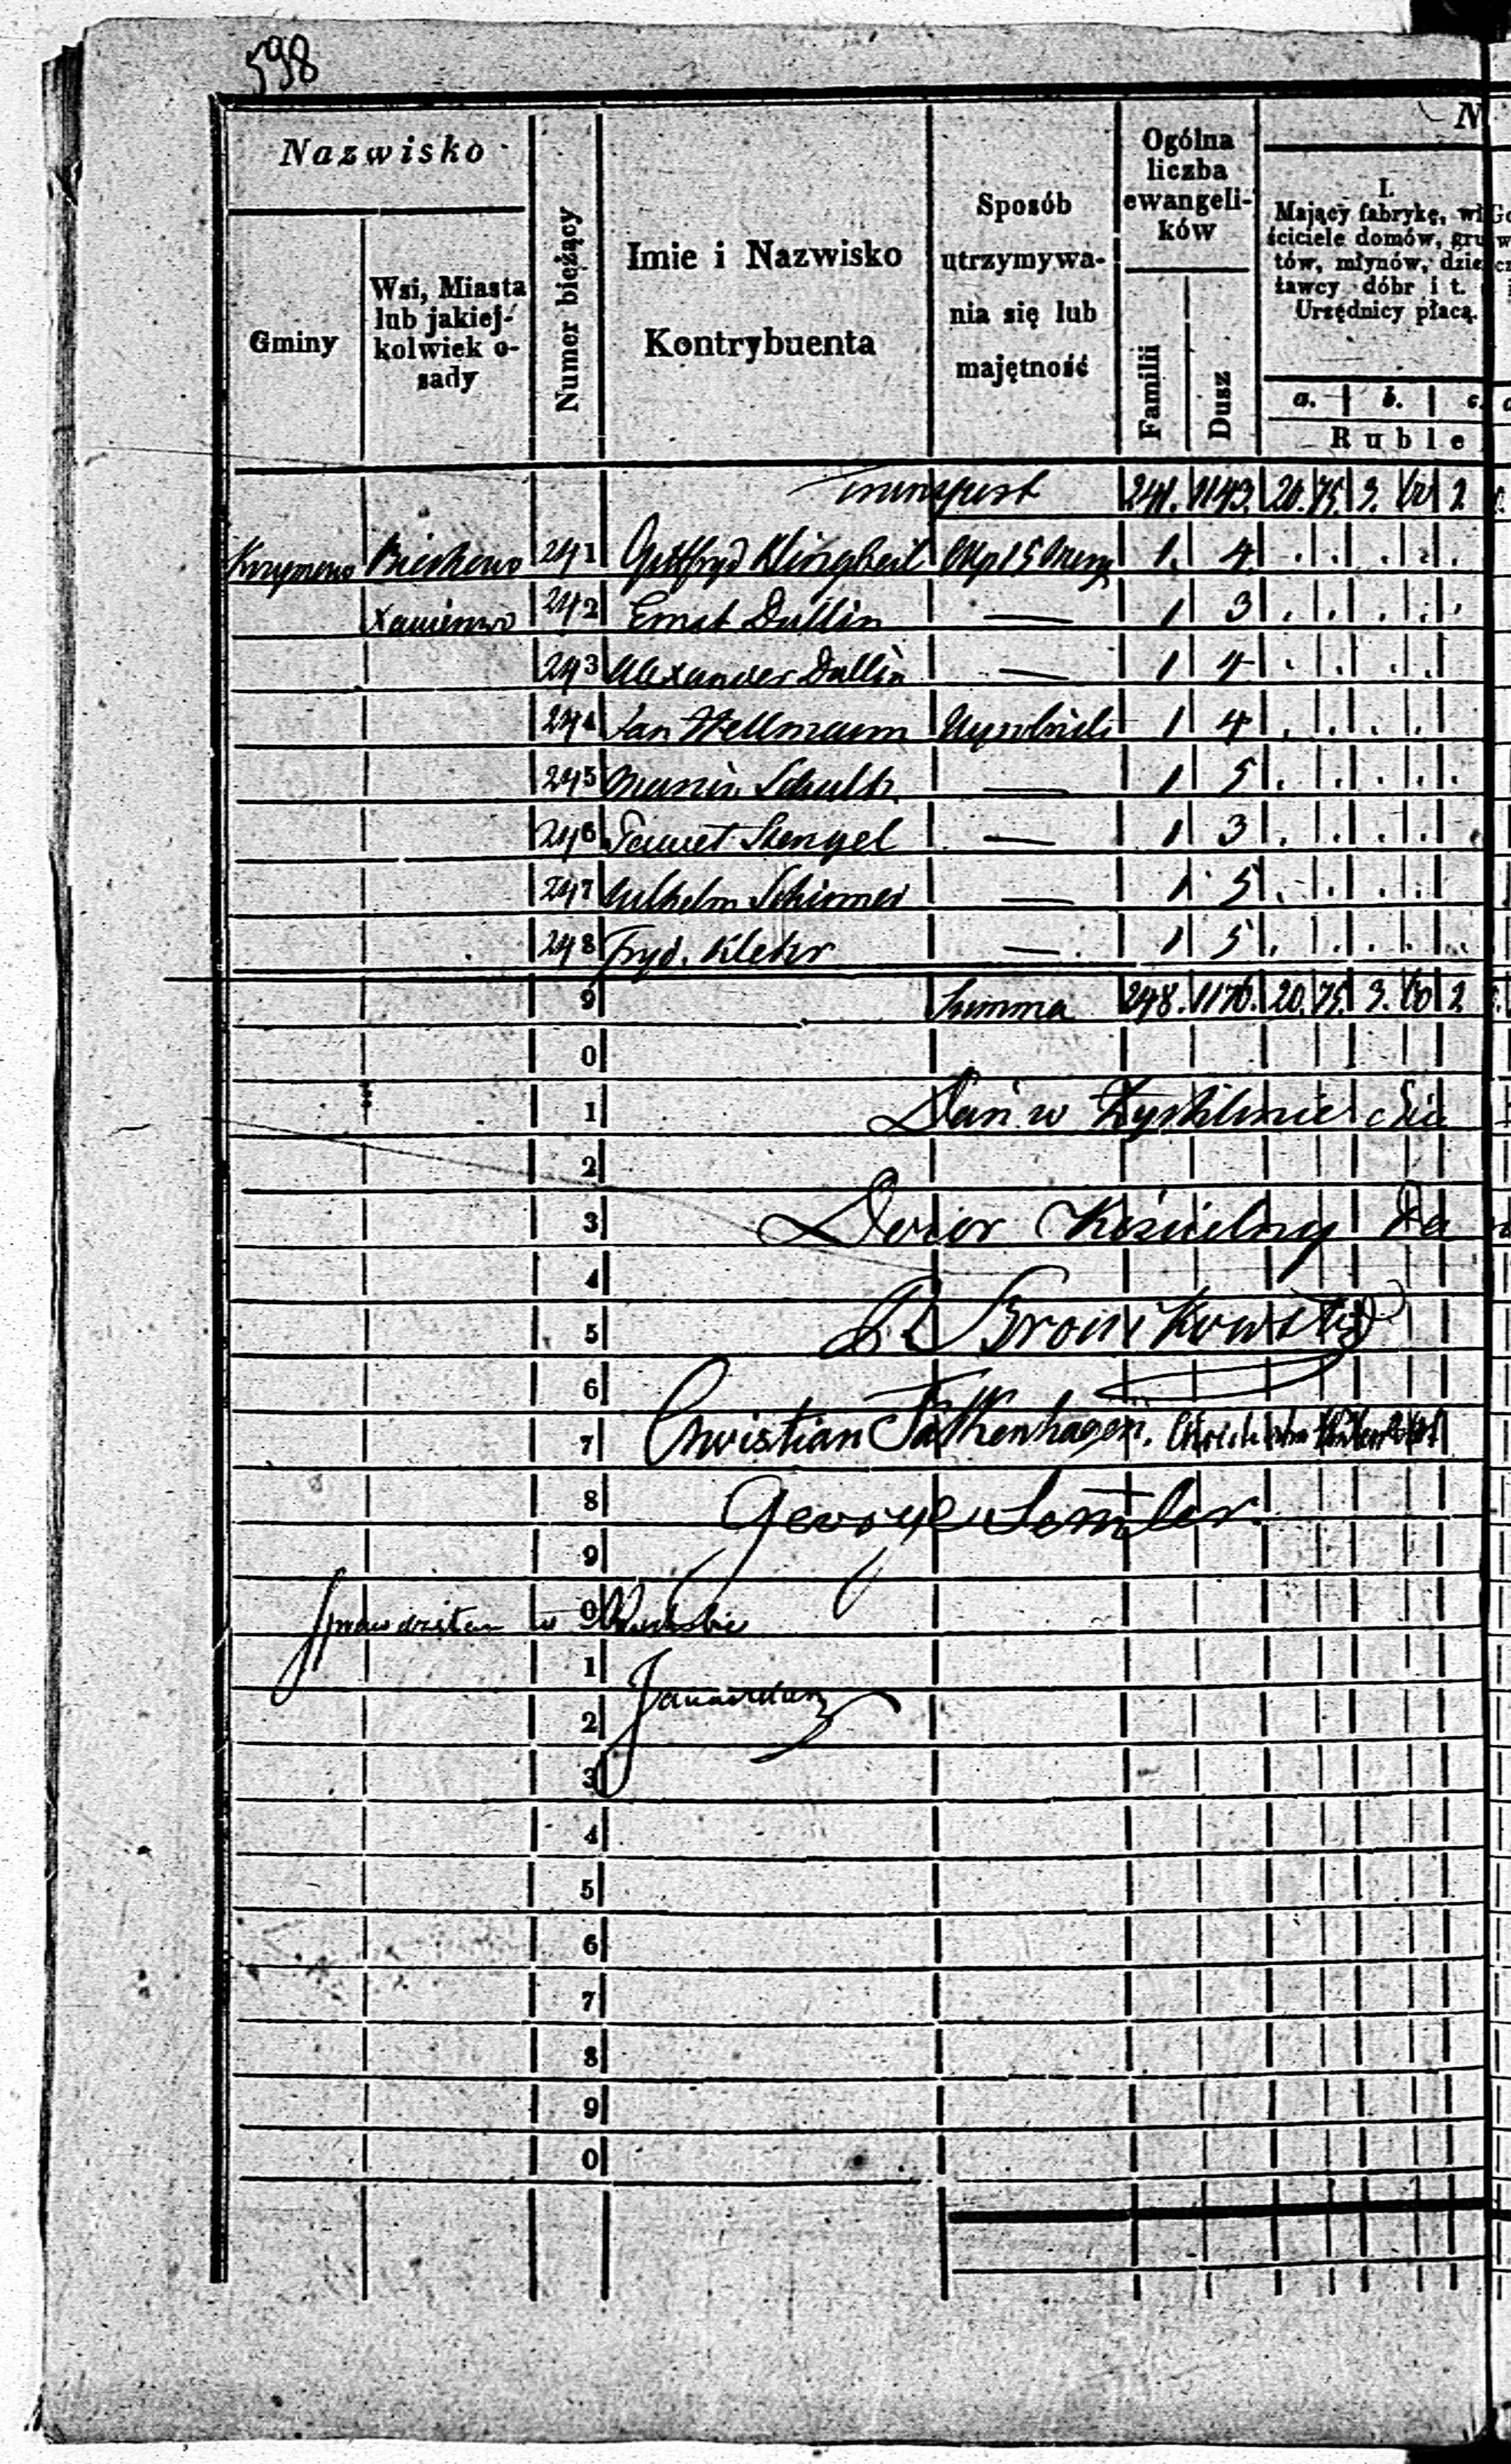 598
Nazwisko
N
Gminy
Wsi, Miasta
lub jakiej-
kolwiek o-
sady
Numer bieżący
Imie i Nazwisko
Kontrybuenta
Sposób
utrzymywa-
nia się lub
majętność
Ogólna
liczba
ewangeli-
ków
Familii
Dusz
I.
Mający fabrykę, wł
ściciele domów, gru
tów, młynów, dzie
ławcy dóbr i t.
Urzędnicy płacą.
a. b. c.
Ruble
Transport 241. 1143. 20. 75. 3. 60 2
Krzymowo 241 Gottfryd Klingbeil 1. 4
242 Ernst Dallin — 1 3
243 Alexander Dallin — 1 4
244 Jan Hellmann Wyrobnik 1 4
245 Marcin Schultz — 1 5
246 Samuel Stengel — 1 3
247 Wilhelm Schirmer — 1 5
248 Fryd. Kleber — 1 5
9 Summa 248. 1176. 20. 75. 3. 60 2
0
1 Dan w
2
3 Dozor Kościelny
4
5 Bronikowski
6
7 Christian Falkenhagen.
8 George Semler
9
0 Sprawdziłem w
1
2
3
4
5
6
7
8
9
0